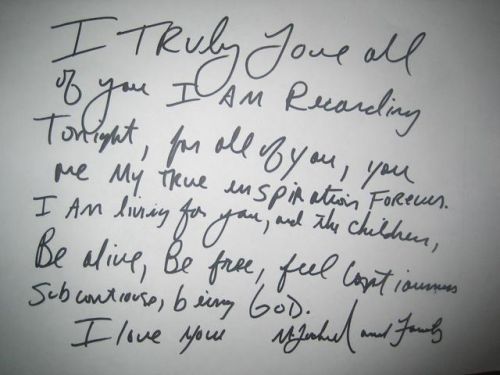 I TRuly Love all
of you I AM Recording
Tonight, for all of you, you
are My TRue inSPiRation FoReveR.
I AM living for you, and The children,
Be alive, Be free, feel
being GOD.
I love you and Family